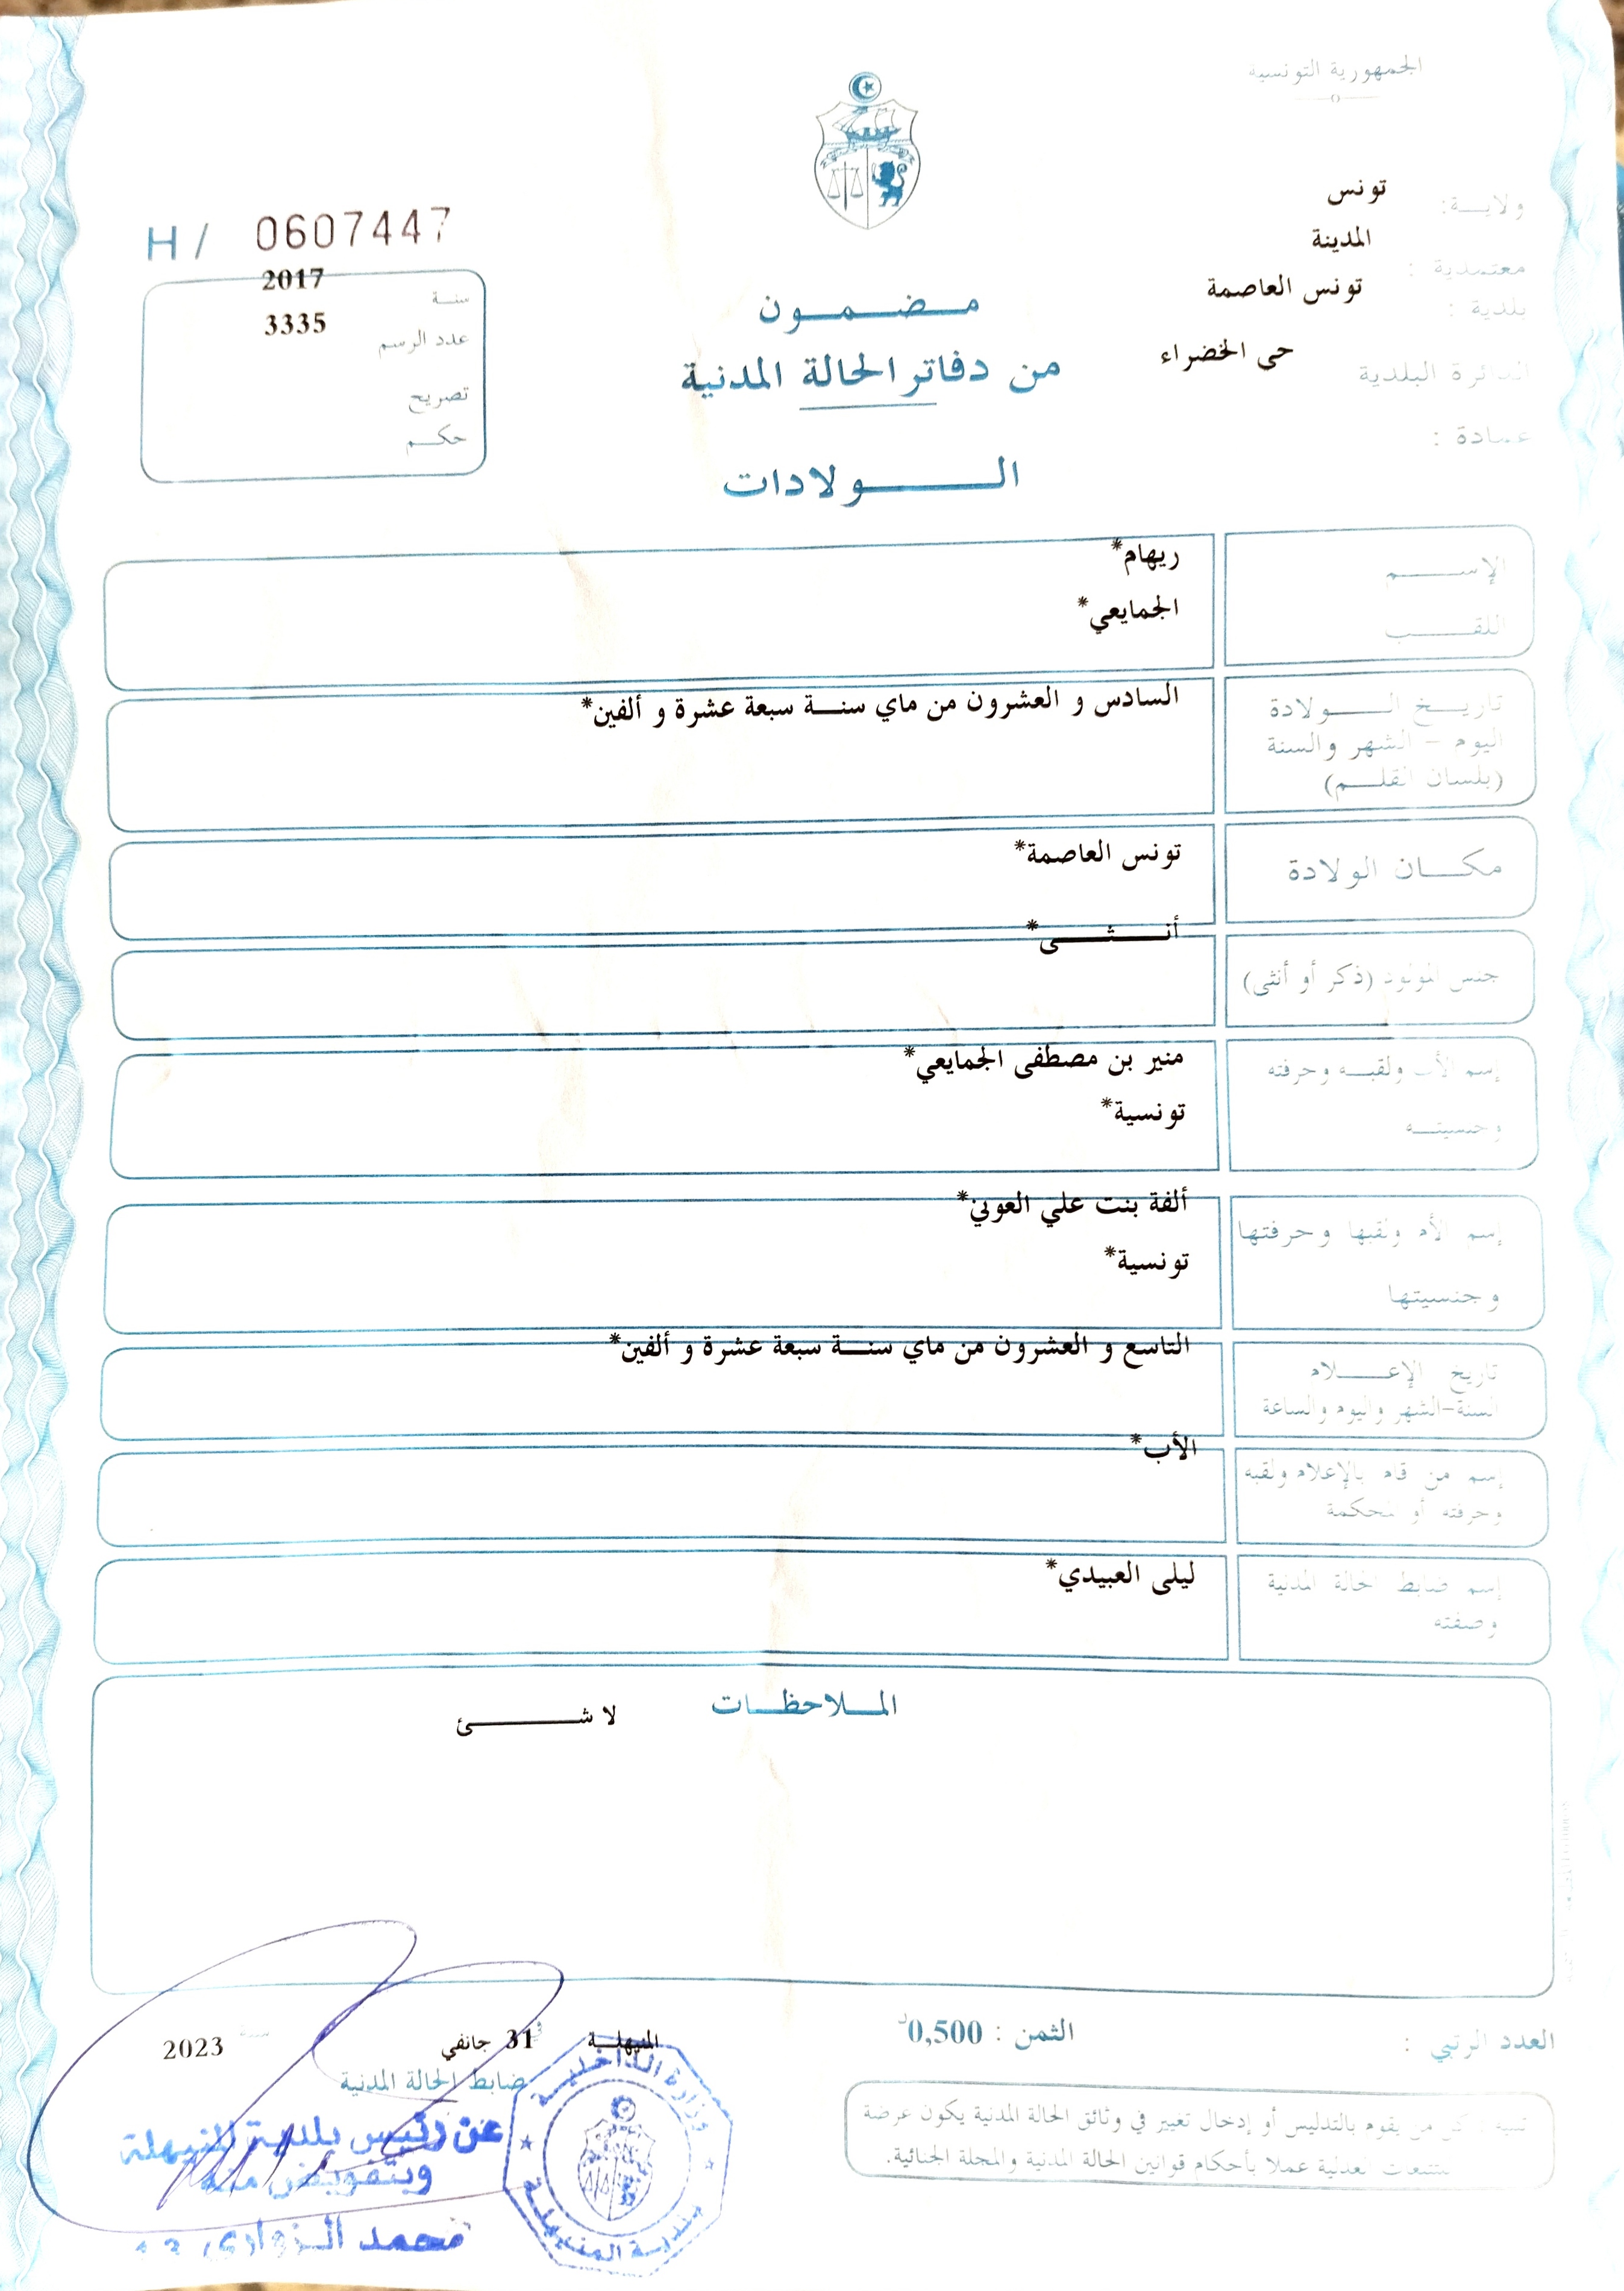 الجمهورية التونسية
ولايـة: تونس
معتمدية : المدينة
بلدية : تونس العاصمة
الدائرة البلدية حى الخضراء
عمادة :
H / 0607447
سنة 2017
عدد الرسم 3335
تصريح
حكم
مضمون
من دفاتر الحالة المدنية
الولادات
الإسم ريهام*
اللقب الجمايعي*
تاريخ الولادة السادس و العشرون من ماي سنة سبعة عشرة و ألفين*
اليوم - الشهر والسنة
(بلسان القلم)
مكان الولادة تونس العاصمة*
جنس المولود (ذكر أو أنثى) أنثى*
إسم الأب ولقبه وحرفته منير بن مصطفى الجمايعي*
وجنسيته تونسية*
إسم الأم ولقبها وحرفتها ألفة بنت علي العوني*
وجنسيتها تونسية*
تاريخ الإعلام التاسع و العشرون من ماي سنة سبعة عشرة و ألفين*
السنة-الشهر واليوم والساعة
إسم من قام بالإعلام ولقبه الأب*
وحرفته أو المحكمة
إسم ضابط الحالة المدنية ليلى العبيدي*
وصفته
الملاحظات
لا شئ
العدد الرتبي :
الثمن : 0,500د
المنيهلة في 31 جانفي سنة 2023
ضابط الحالة المدنية
عن رئيس بلدية المنيهلة
وبتفويض منه
محمد الزواري
وزارة الداخلية
بلدية المنيهلة
تنبيه : كل من يقوم بالتدليس أو إدخال تغيير في وثائق الحالة المدنية يكون عرضة
للتتبعات العدلية عملا بأحكام قوانين الحالة المدنية والمجلة الجنائية.